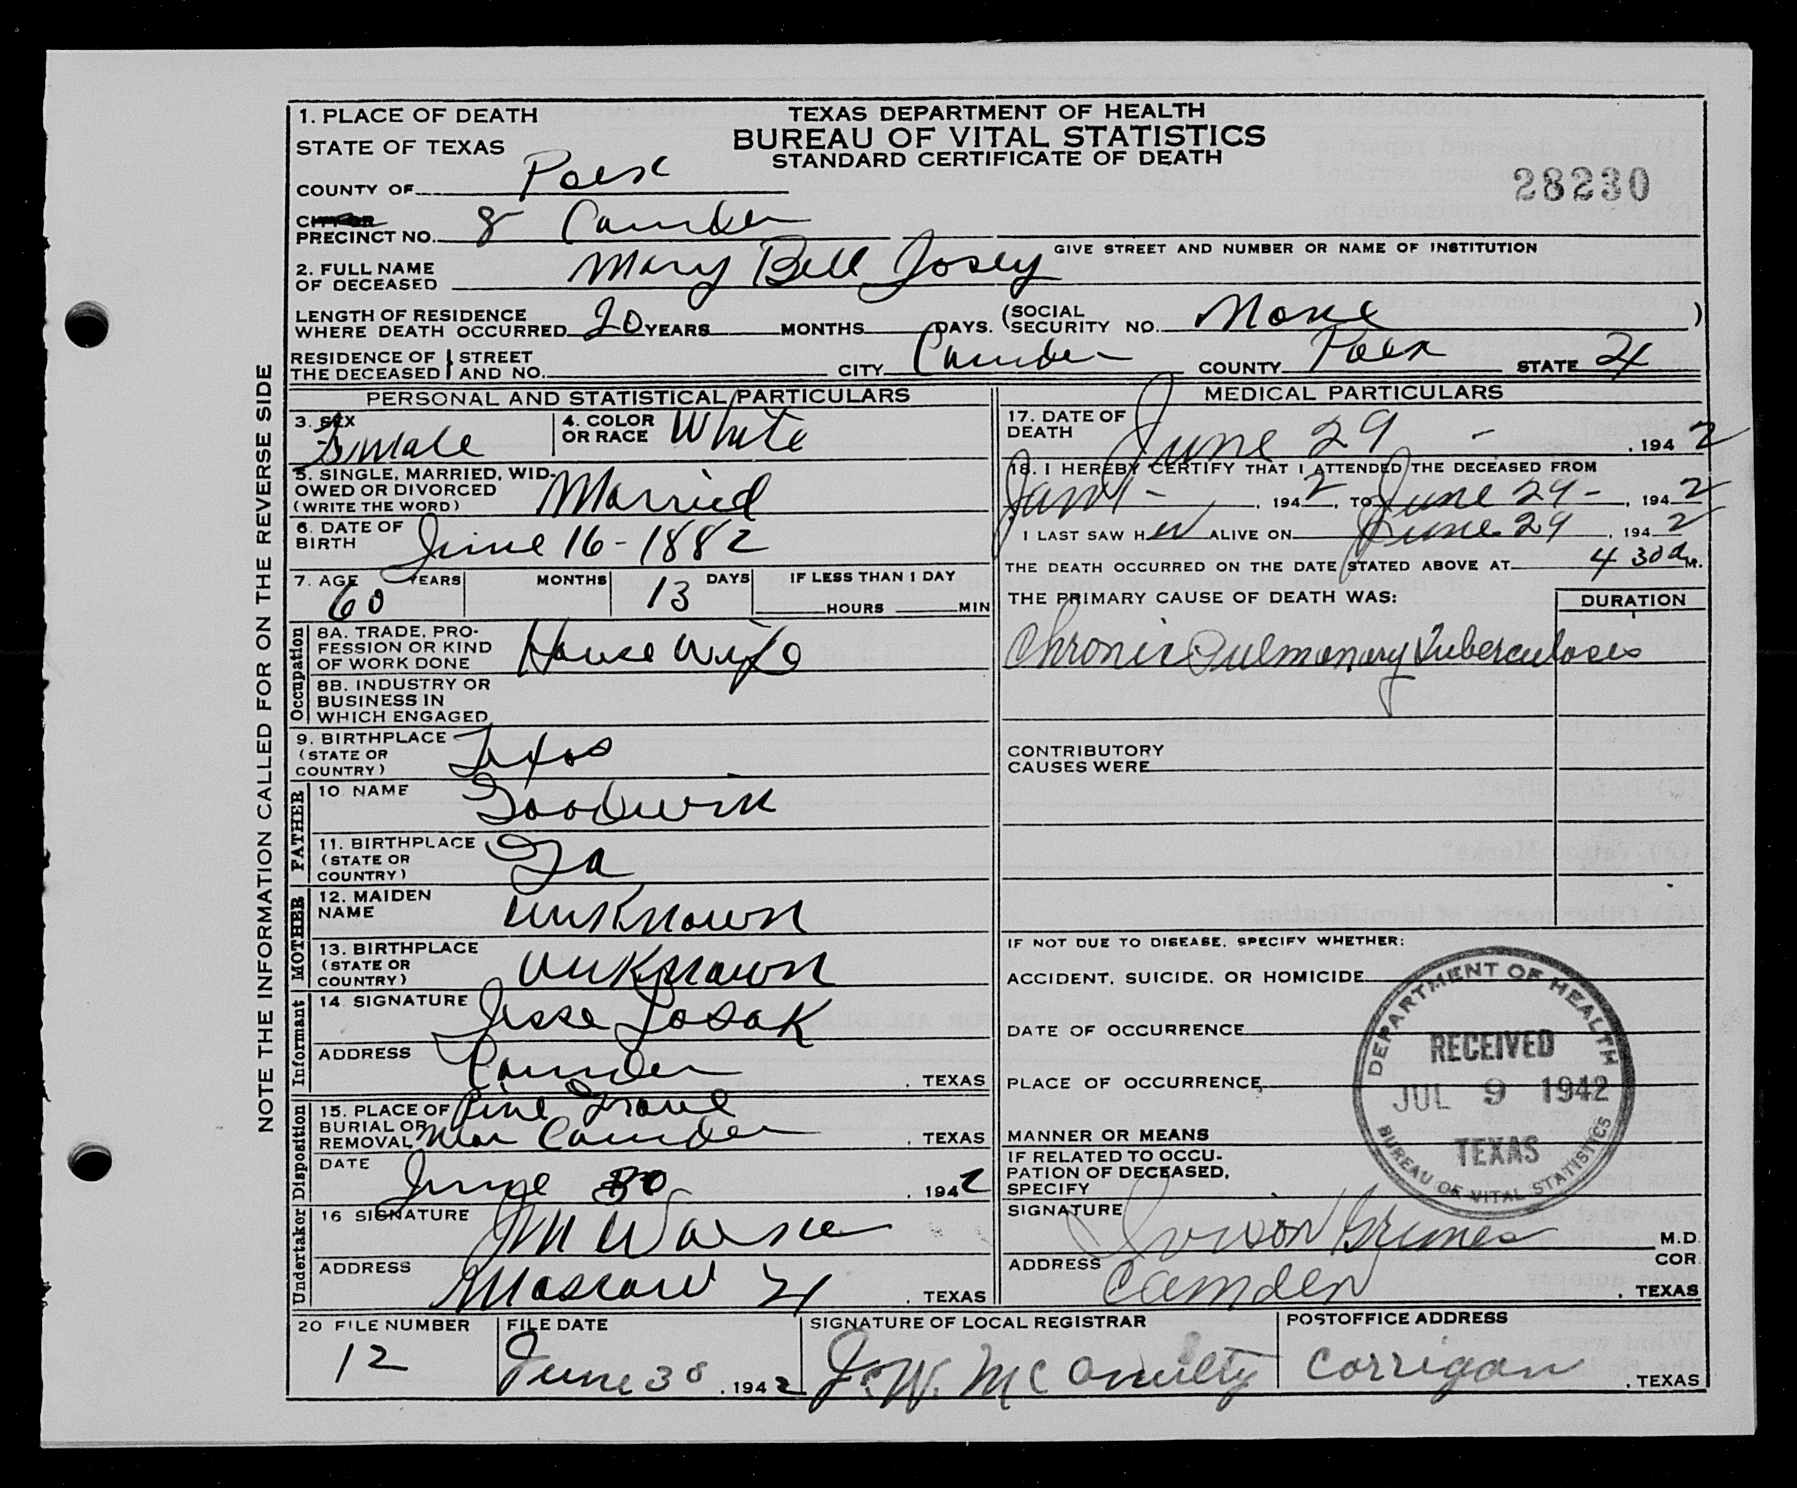 TEXAS DEPARTMENT OF HEALTH
BUREAU OF VITAL STATISTICS
STANDARD CERTIFICATE OF DEATH
28230
1. PLACE OF DEATH
STATE OF TEXAS
COUNTY OF Polk
CITY OR
PRECINCT NO. 8 Camden
GIVE STREET AND NUMBER OR NAME OF INSTITUTION
2. FULL NAME OF DECEASED Mary Bell Josey
LENGTH OF RESIDENCE
WHERE DEATH OCCURRED 20 YEARS MONTHS DAYS. (SOCIAL SECURITY NO. None )
RESIDENCE OF THE DECEASED STREET AND NO. CITY Camden COUNTY Polk STATE
NOTE THE INFORMATION CALLED FOR ON THE REVERSE SIDE
PERSONAL AND STATISTICAL PARTICULARS
3. SEX Female
4. COLOR OR RACE White
5. SINGLE, MARRIED, WIDOWED OR DIVORCED (WRITE THE WORD) Married
6. DATE OF BIRTH June 16-1882
7. AGE 60 YEARS MONTHS 13 DAYS IF LESS THAN 1 DAY HOURS MIN
Occupation
8A. TRADE, PROFESSION OR KIND OF WORK DONE House Wife
8B. INDUSTRY OR BUSINESS IN WHICH ENGAGED
9. BIRTHPLACE (STATE OR COUNTRY) Texas
FATHER
10 NAME Goodwin
11. BIRTHPLACE (STATE OR COUNTRY) Ga
MOTHER
12. MAIDEN NAME unknown
13. BIRTHPLACE (STATE OR COUNTRY) unknown
Informant
14. SIGNATURE Jesse
ADDRESS Camden, TEXAS
Disposition
15. PLACE OF BURIAL OR REMOVAL Pine Grove near Camden, TEXAS
DATE June 30, 1942
Undertaker
16 SIGNATURE
ADDRESS, TEXAS
MEDICAL PARTICULARS
17. DATE OF DEATH June 29 -, 1942
18. I HEREBY CERTIFY THAT I ATTENDED THE DECEASED FROM
Jan 1 -, 1942, TO June 29 -, 1942
I LAST SAW her ALIVE ON June 29, 1942
THE DEATH OCCURRED ON THE DATE STATED ABOVE AT 4 30 a M.
THE PRIMARY CAUSE OF DEATH WAS: DURATION
Chronic Pulmonary Tuberculosis
CONTRIBUTORY CAUSES WERE
IF NOT DUE TO DISEASE, SPECIFY WHETHER:
ACCIDENT, SUICIDE, OR HOMICIDE
DATE OF OCCURRENCE
PLACE OF OCCURRENCE
MANNER OR MEANS
IF RELATED TO OCCUPATION OF DECEASED, SPECIFY
DEPARTMENT OF HEALTH
RECEIVED
JUL 9 1942
TEXAS
BUREAU OF VITAL STATISTICS
SIGNATURE Grimes M.D. COR
ADDRESS Camden, TEXAS
20 FILE NUMBER 12
FILE DATE June 30, 1942
SIGNATURE OF LOCAL REGISTRAR J. W. McAnulty
POSTOFFICE ADDRESS Corrigan, TEXAS